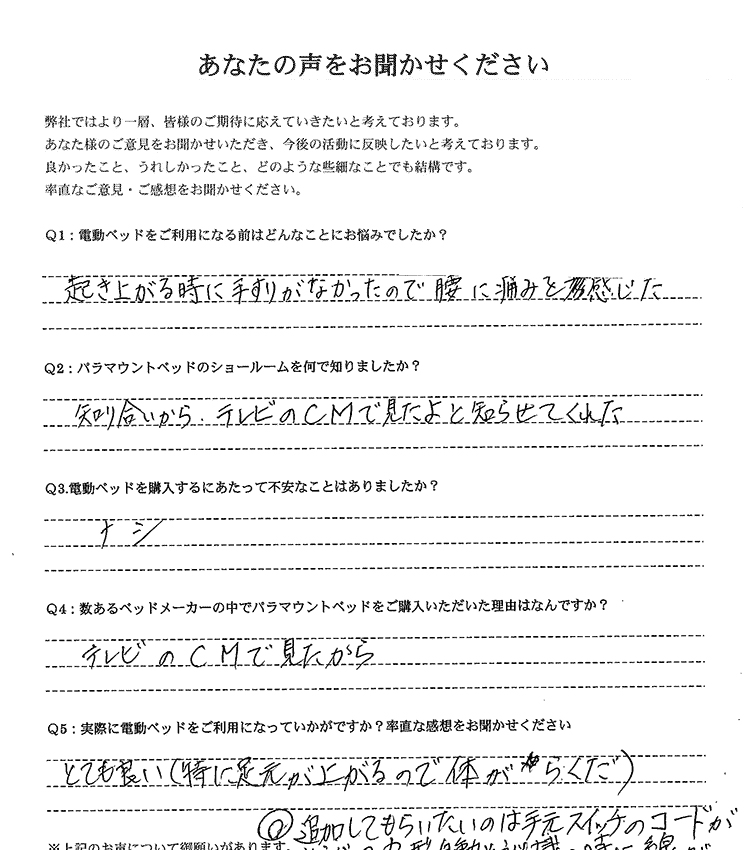 あなたの声をお聞かせください
弊社ではより一層、皆様のご期待に応えていきたいと考えております。
あなた様のご意見をお聞かせいただき、今後の活動に反映したいと考えております。
良かったこと、うれしかったこと、どのような些細なことでも結構です。
率直なご意見・ご感想をお聞かせください。
Q1：電動ベッドをご利用になる前はどんなことにお悩みでしたか？
起き上がる時に手すりがなかったので腰に痛みを感じた
Q2：パラマウントベッドのショールームを何で知りましたか？
知り合いから、テレビのCMで見たよと知らせてくれた
Q3.電動ベッドを購入するにあたって不安なことはありましたか？
ナシ
Q4：数あるベッドメーカーの中でパラマウントベッドをご購入いただいた理由はなんですか？
テレビのCMで見たから
Q5：実際に電動ベッドをご利用になっていかがですか？率直な感想をお聞かせください
とても良い(特に足元が上がるので体がらくだ)
◎追加してもらいたいのは手元スイッチのコードが
※上記のお声について御願いがあります。